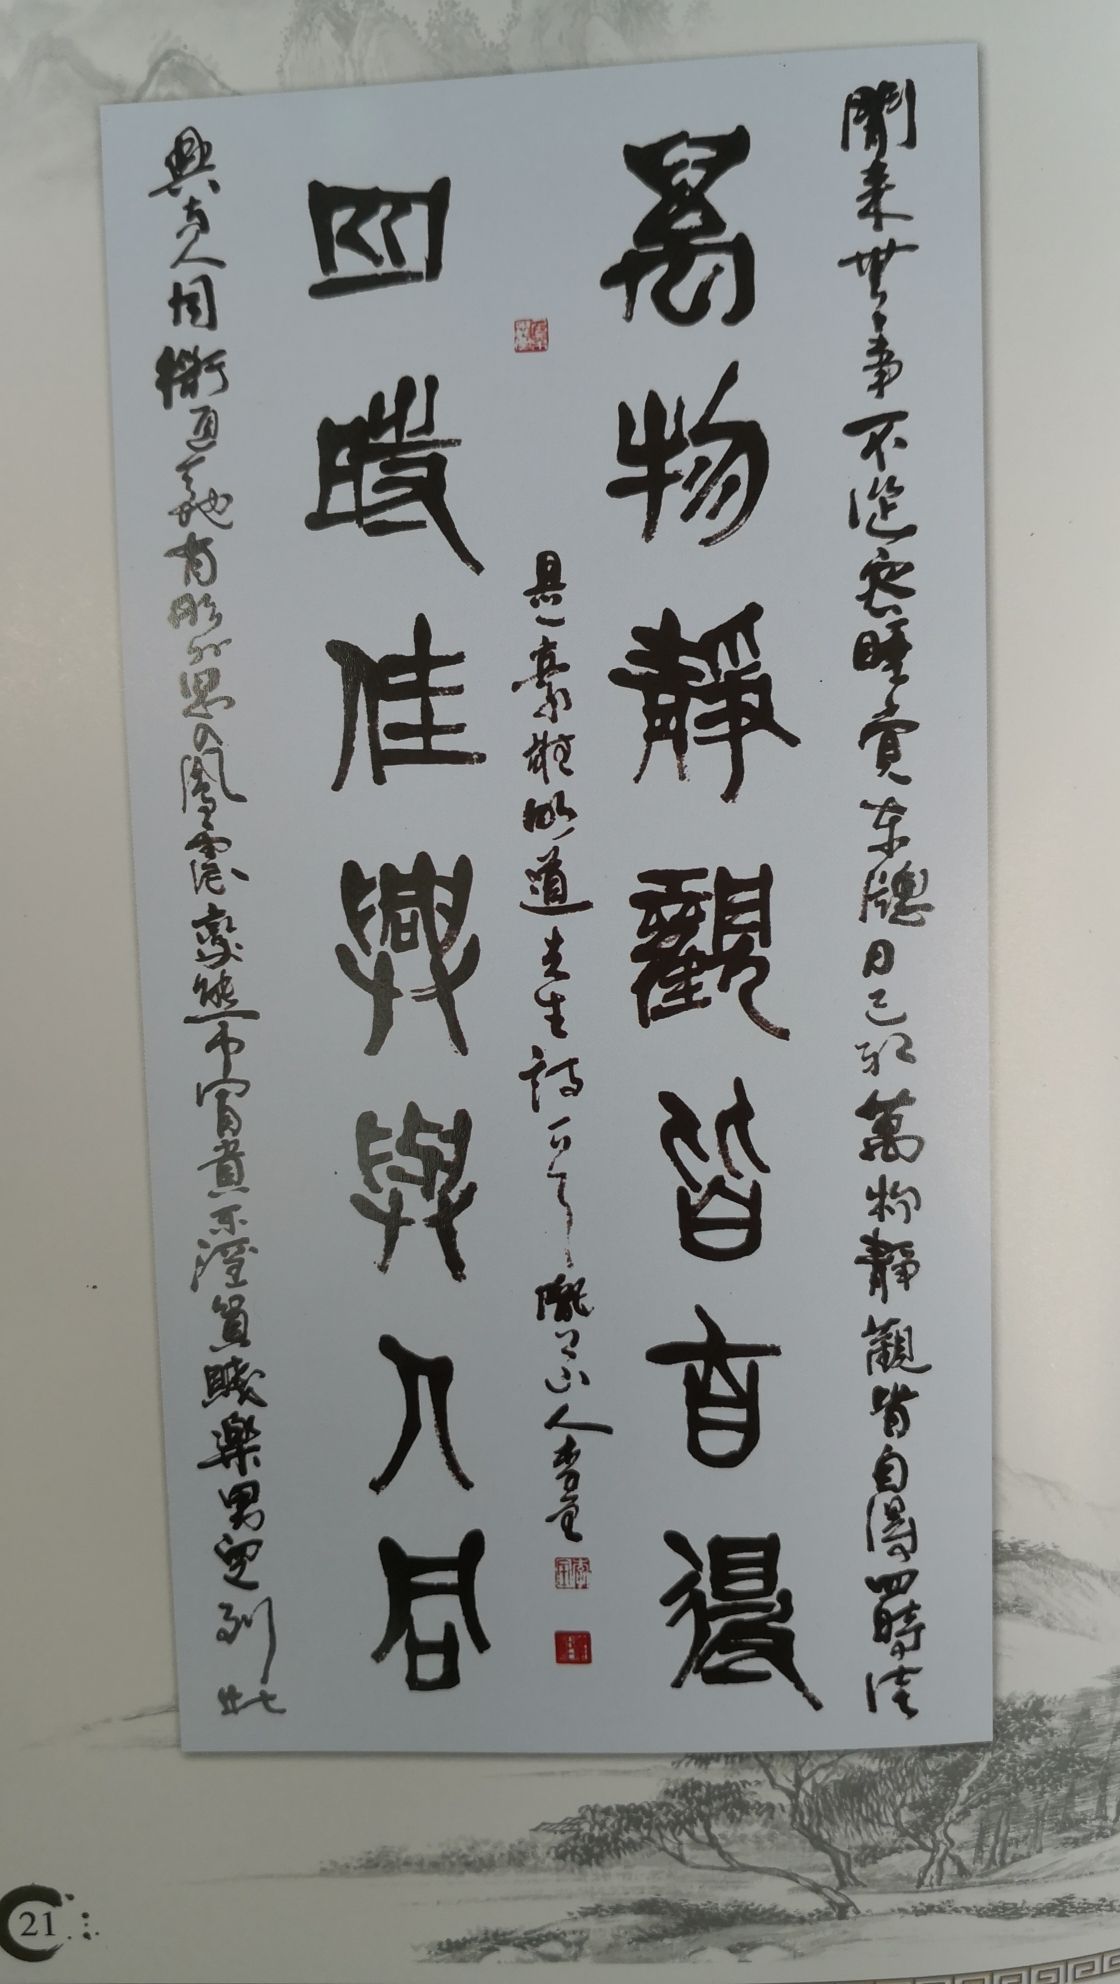 萬物靜觀皆自得
四時佳興與人同
閒来無事不從容睡覺東窗日已紅萬物靜觀皆自得四時佳
興与人同衜通天地有形外思入風雲變態中富貴不淫貧賤樂男兒到此
是豪雄明道先生詩一首隴上山人李
21